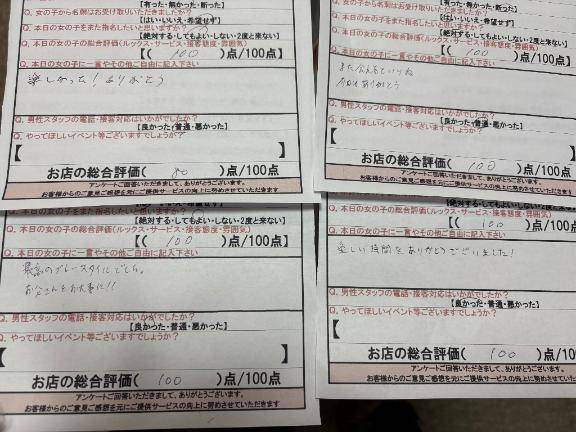 【有った・無かった・断った】
Q. 女の子から名刺はお受け取りいただきましたか?
【はい・いいえ・希望せず】
Q. 本日の女の子をまた指名したいと思いますか?
【絶対する・してもよい・しない・2度と来ない】
Q. 本日の女の子の総合評価(ルックス・サービス・接客態度・雰囲気)
【( 100 )点/100点】
Q. 本日の女の子に一言やその他ご自由に記入下さい
楽しかった!ありがとう
Q. 男性スタッフの電話・接客対応はいかがでしたか?
【良かった・普通・悪かった】
Q. やってほしいイベント等ございますでしょうか?
【 】
お店の総合評価( 80 )点/100点
アンケートご回答いただきまして、ありがとうございます。
お客様からのご意見ご感想を元にご提供サービスの向上に努めさせていただきます
【はい・いいえ・希望せず】
Q. 本日の女の子をまた指名したいと思いますか?
【絶対する・してもよい・しない・2度と来
Q. 本日の女の子の総合評価(ルックス・サービス・接客態度・雰囲気)
【( 100 )点/100
Q. 本日の女の子に一言やその他ご自由に記入下さい
また会えるといいね
今日はありがとう
Q. 男性スタッフの電話・接客対応はいかがでしたか?
【良かった・普通・悪かった】
Q. やってほしいイベント等ございますでしょうか?
【
お店の総合評価( 100 )点/10
アンケートご回答いただきまして、ありがとうございます。
お客様からのご意見ご感想を元にご提供サービスの向上に努めさせていただ
【絶対する・してもよい・しない・2度と来ない】
Q. 本日の女の子の総合評価(ルックス・サービス・接客態度・雰囲気)
【( 100 )点/100点】
Q. 本日の女の子に一言やその他ご自由に記入下さい
最高のプレースタイルでした。
お父さんをお大事に!!
Q. 男性スタッフの電話・接客対応はいかがでしたか?
【良かった・普通・悪かった】
Q. やってほしいイベント等ございますでしょうか?
【 】
お店の総合評価( 100 )点/100点
アンケートご回答いただきまして、ありがとうございます。
お客様からのご意見ご感想を元にご提供サービスの向上に努めさせていただきます
【絶対する・してもよい・しない・2度と来ない
Q. 本日の女の子の総合評価(ルックス・サービス・接客態度・雰囲気)
【( 100 )点/100点
Q. 本日の女の子に一言やその他ご自由に記入下さい
楽しい時間をありがとうございました!
Q. 男性スタッフの電話・接客対応はいかがでしたか?
【良かった・普通・悪かった】
Q. やってほしいイベント等ございますでしょうか?
【
お店の総合評価( 100 )点/100
アンケートご回答いただきまして、ありがとうございます。
お客様からのご意見ご感想を元にご提供サービスの向上に努めさせていただき